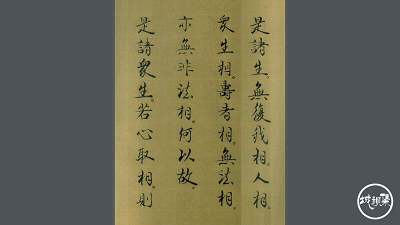 是諸眾生。無復我相。人相。
眾生相。壽者相。無法相。
亦無非法相。何以故。
是諸眾生。若心取相。則